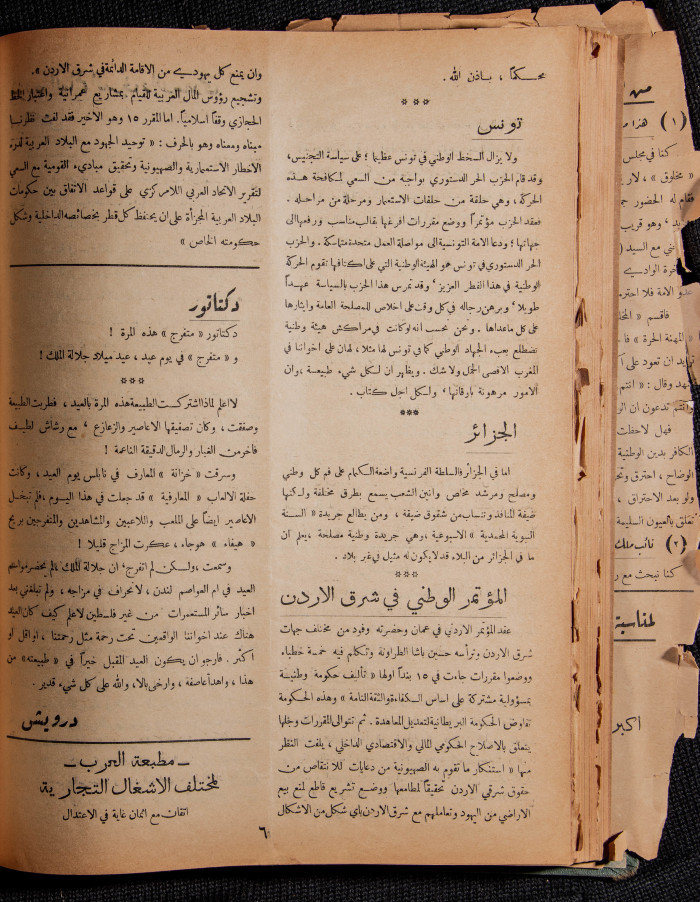 محكماً ، باذن الله .
***
تونس
ولا يزال السخط الوطني في تونس عظيما ؛ على سياسة التجنيس،
وقد قام الحزب الحر الدستوري بواجبه من السعي لمكافحة هذه
الحركة ، وهي حلقة من حلقات الاستعمار ومرحلة من مراحله .
فعقد الحزب مؤتمراً ووضع مقررات افرغها بقالب مناسب ورفعها الى
جهاتها ؛ ودعا الامة التونسية الى مواصلة العمل متحدة متماسكة . والحزب
الحر الدستوري في تونس هو الهيئة الوطنية التي على اكتافها تقوم الحركة
الوطنية في هذا القطر العزيز ' وقد تمرس هذا الحزب بالسياسة عهداً
طويلا ' وبرهن رجاله في كل وقت على اخلاص للمصلحة العامة وايثارها
على كل ماعداها . ونحن نحسب انه لو كانت في مراكش هيئة وطنية
تضطلع بعبء الجهاد الوطني كما في تونس لها مثلا ، لهان على اخواننا في
المغرب الاقصى الحمل ولا شك . ويظهر ان لكل شيء طبيعة ،وان
الامور مرهونة باوقاتها ' ولكل اجل كتاب .
***
الجزائر
اما في الجزائر فالسلطة الفرنسية واضعة الكمام على فم كل وطني
ومصلح ومرشد مخلص وانين الشعب يسمع بطرق مختلفة ولكنها
ضيقة المنافذ وتنساب من شقوق ضيقة ، ومن يطالع جريدة « السنة
النبوية المحمدية » الاسبوعية ،وهي جريدة وطنية مصلحة ،يعلم ان
ما في الجزائر من البلاء قد لا يكون له مثيل في غير بلاد .
***
المؤتمر الوطني في شرق الاردن
عقد المؤتمر الاردني في عمان وحضرته وفود من مختلف جهات
شرق الاردن وترأسه حسين باشا الطراونة وتكلم فيه خمسة خطباء
ووضعوا مقررات جاءت في ١٥ بنداً اولها « تأليف حكومة وطنية
بمسؤولية مشتركة على اساس الكفاءة والثقة التامة » وهذه الحكومة
تفاوض الحكومة البريطانية لتعديل المعاهدة . ثم تتوالى المقررات وجلها
يتعلق بالاصلاح الحكومي المالي والاقتصادي الداخلي ، يلفت النظر
منها « استنكار ما تقوم به الصهيونية من دعايات للانتقاص من
حقوق شرقي الاردن تحقيقاً لمطامعها ووضع تشريع قاطع لمنع بيع
الاراضي من اليهود وتعاملهم مع شرق الاردن باي شكل من الاشكال
وان يمنع كل يهودي من الاقامة الدائمة في شرق الاردن ».
وتشجيع رؤوس المال العربية للقيام بمشاريع عمرانية واعتبار الخط
الحجازي وقفاً اسلامياً. اما المقرر ١٥ وهو الاخير فقد لفت نظرنا
مبناه ومعناه وهو بالحرف : « توحيد الجهود مع البلاد العربية لدرء
الاخطار الاستعمارية والصهيونية وتحقيق مباديء القومية مع السعي
لتقرير الاتحاد العربي اللامركزي على قواعد الاتفاق بين حكومات
البلاد العربية المجزأة على ان يحتفظ كل قطر بخصائصه الداخلية وشكل
حكومته الخاص »
دكتاتور
دكتاتور « متفرج » هذه المرة !
و « متفرج » في يوم عيد ، عيد ميلاد جلالة الملك !
***
لا اعلم لماذا اشتركت الطبيعة هذه المرة بالعيد ، فطربت الطبيعة
وصفقت ، وكان تصفيقها الاعاصير والزعازع ' مع رشاش لطيف
فاخر من الغبار والرمال الدقيقة الناعمة !
وسرقت « خزانة » المعارف في نابلس يوم العيد ، وكانت
حفلة الالعاب « المعارفية » قد جعلت في هذا اليوم ،فلم تبخل
الاعاصير ايضاً على الملعب واللاعبين والمشاهدين والمتفرجين بريح
« هيفاء » هوجاء ، عكرت المزاج قليلا !
وسمعت ،ولكن لم اتفرج' ان جلالة الملك ،لم يحضر مواسم
العيد في ام العواصم لندن ، لانحراف في مزاجه ، ولم تبلغني بعد
اخبار سائر المستعمرات من غير فلسطين لاعلم كيف كان العيد
هناك عند اخواننا الواقعين تحت رحمة مثل رحمتنا ، او اقل او
اكثر . فارجو ان يكون العيد المقبل خيراً في « طبيعته » من
هذا ، واهدأ عاصفة ، وارخى بالا ، والله على كل شيء قدير .
درويش
ــ مطبعة العرب ــ
لمختلف الاشغال التجارية
اتقان مع اثمان غاية في الاعتدال
٦
من
(١) هذا
كنا في مجلس
« مخلوق » ،
فقام له الحضور
وهو قريب
مع السيد
الامة فلا
فاقسم «
« المهنة الحرة »
ان تعود على
وقال : « انتم
تدعون ان
فهل لاحظت
الكافر بدين الوطنية
الوضاح ، احترق
ولو بعد الاحتراق ،
تتعلق بالعيون السليمة
(٢) نائب ملك
كنا نبحث مع
لمناسبة
اكبر